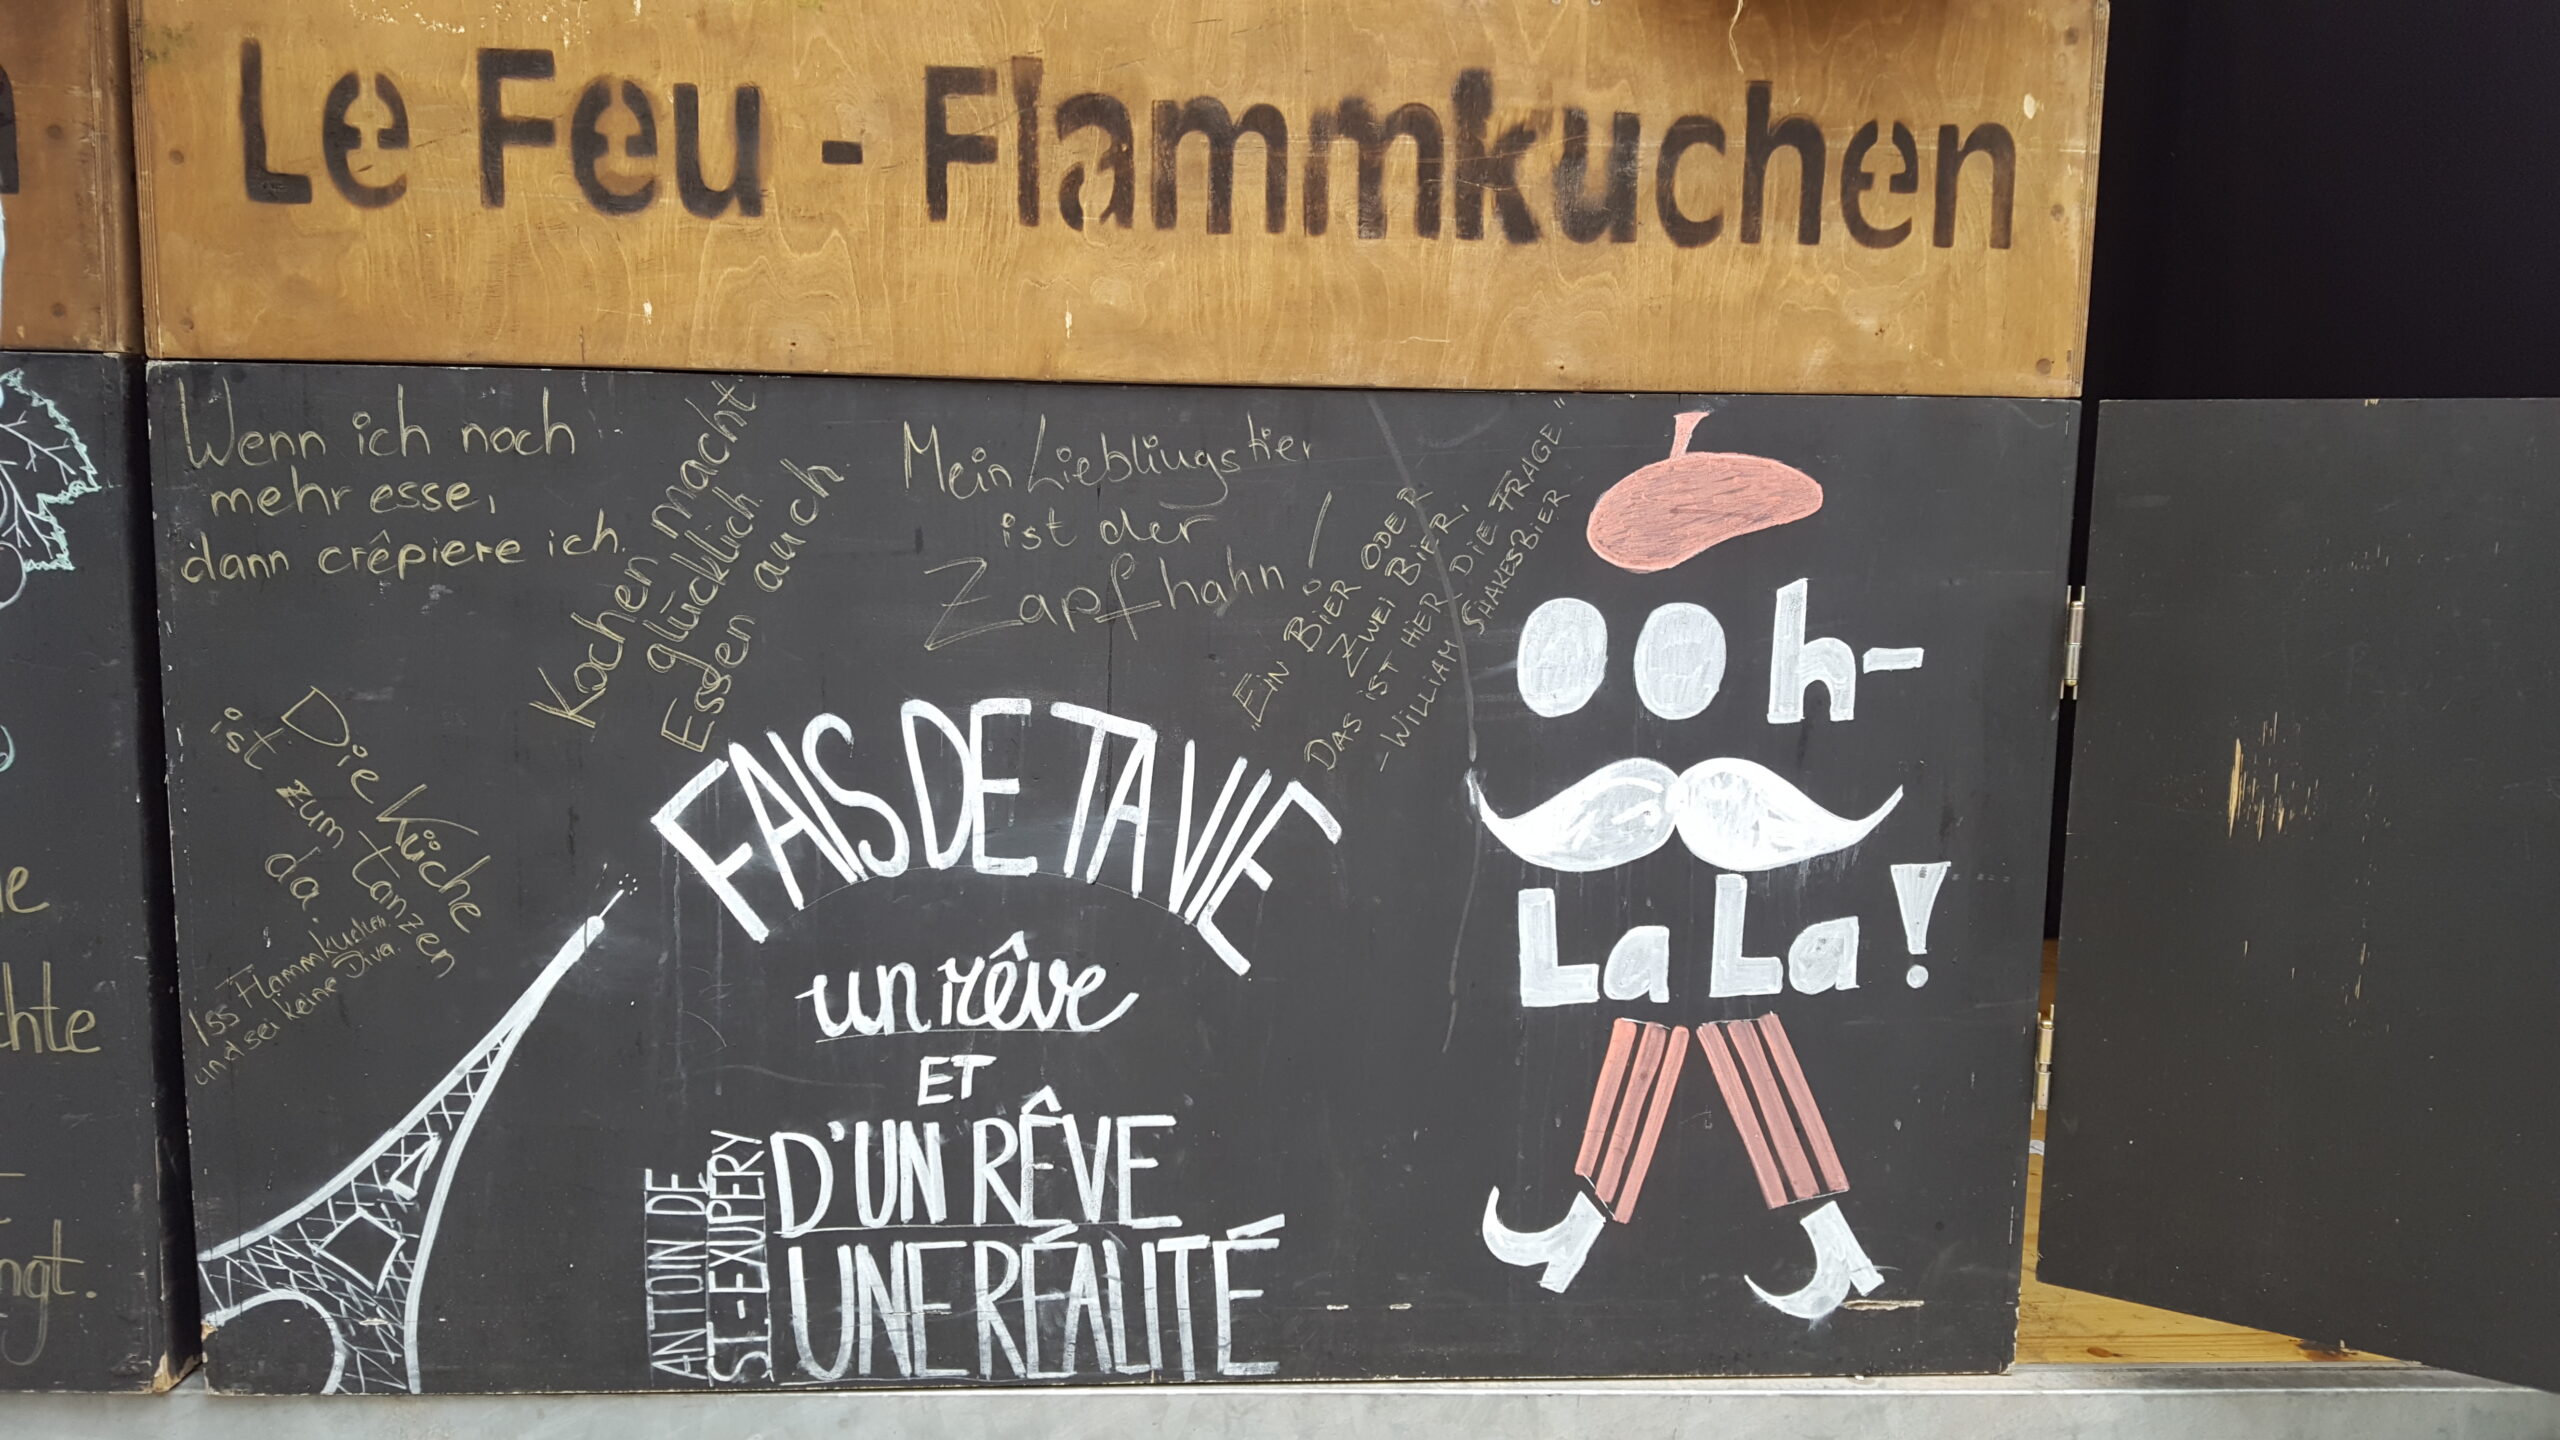 Le Feu - Flammkuchen
Wenn ich noch
mehr esse,
dann crêpiere ich.
Kochen macht
glücklich.
Essen auch
Mein Lieblingstier
ist der
Zapfhahn!
„Ein Bier oder
zwei Bier,
Das ist hier die Frage."
- William Shakesbier
Die Küche
ist zum Tanzen
da.
Iss Flammkuchen
und sei keine Diva.
FAIS DE TA VIE
un rêve
ET
D'UN RÊVE
UNE RÉALITÉ
ANTOIN DE
ST.-EXUPÉRY
ooh-
La La!
hte
ngt.